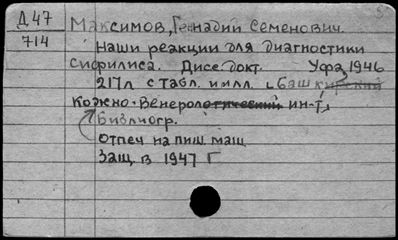 Д 47
714
Максимов, Геннадий Семенович.
Наши реакции для диагностики
сифилиса. Дисс. докт. Уфа, 1946
217 л с табл. и илл. (Башкирский
кожно-венерологический ин-т)
Библиогр.
Отпеч на пиш. маш
Защ. в 1947 г